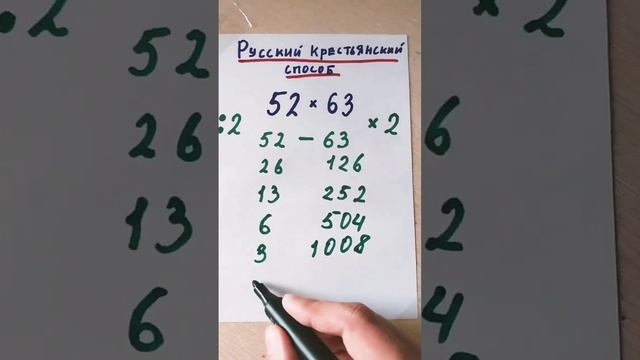 Русский крестьянский
способ
52 × 63
:2 ×2
52 — 63
26 126
13 252
6 504
3 1008